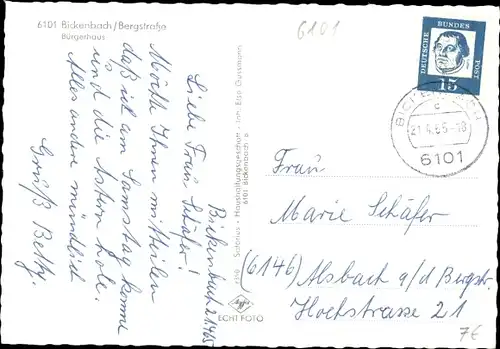 6101 Bickenbach/Bergstraße
Bürgerhaus
6101
Bickenbach 21.4.65
Liebe Frau Schäfer!
Möchte Ihnen mitteilen
daß ich am Samstag komme
und die Astern hole.
Alles andere mündlich
Gruß Betty.
6101 Bickenbach
ECHT FOTO
DEUTSCHE BUNDESPOST
15
BICKENBACH
21.4.65-18
6101
Frau
Marie Schäfer
(6146) Alsbach a/d Bergstr.
Hochstrasse 21
7€